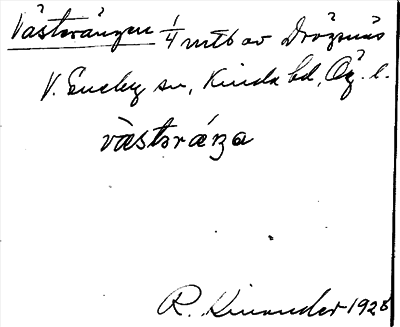 Västerängen 1/4 mtb av Drögsnäs
V. Eneby sn, Kinda hd, Ög. l.
västərá́ŋa
R. Kinander 1928